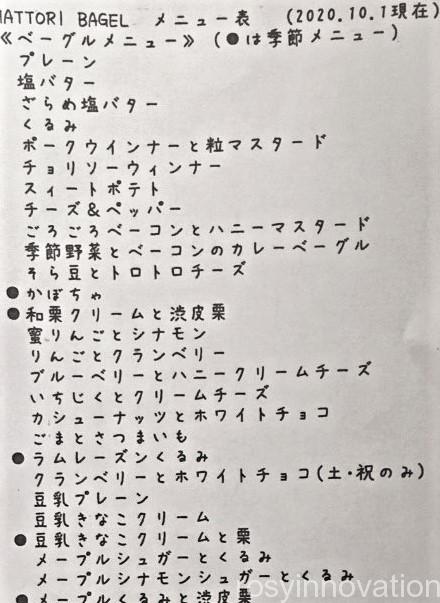 HATTORI BAGEL メニュー表 (2020.10.1現在)
《ベーグルメニュー》(●は季節メニュー)
プレーン
塩バター
ざらめ塩バター
くるみ
ポークウインナーと粒マスタード
チョリソーウィンナー
スィートポテト
チーズ&ペッパー
ごろごろベーコンとハニーマスタード
季節野菜とベーコンのカレーベーグル
そら豆とトロトロチーズ
●かぼちゃ
●和栗クリームと渋皮栗
蜜りんごとシナモン
りんごとクランベリー
ブルーベリーとハニークリームチーズ
いちじくとクリームチーズ
カシューナッツとホワイトチョコ
ごまとさつまいも
●ラムレーズンくるみ
クランベリーとホワイトチョコ(土・祝のみ)
豆乳プレーン
豆乳きなこクリーム
●豆乳きなこクリームと栗
メープルシュガーとくるみ
メープルシナモンシュガーとくるみ
●メープルくるみと渋皮栗
rosyinnovation